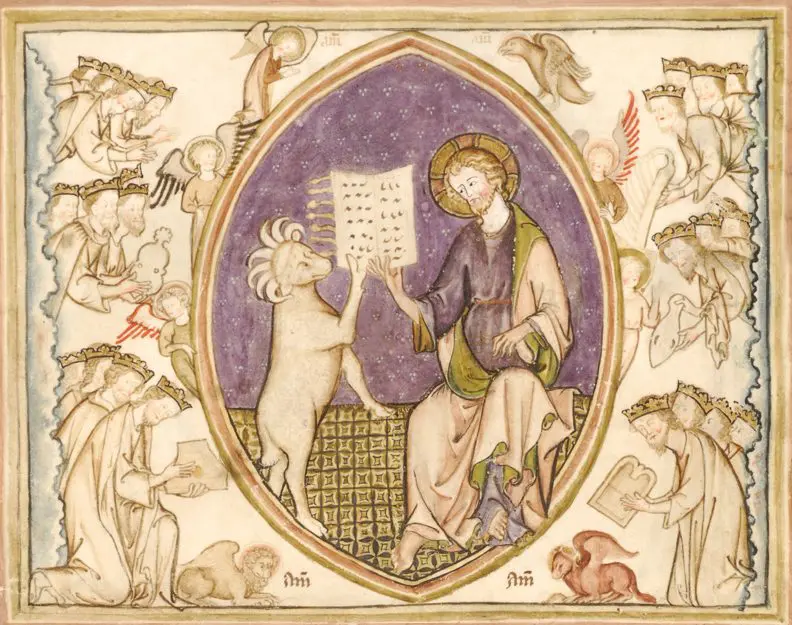 am̄ am̄
am̄ am̄